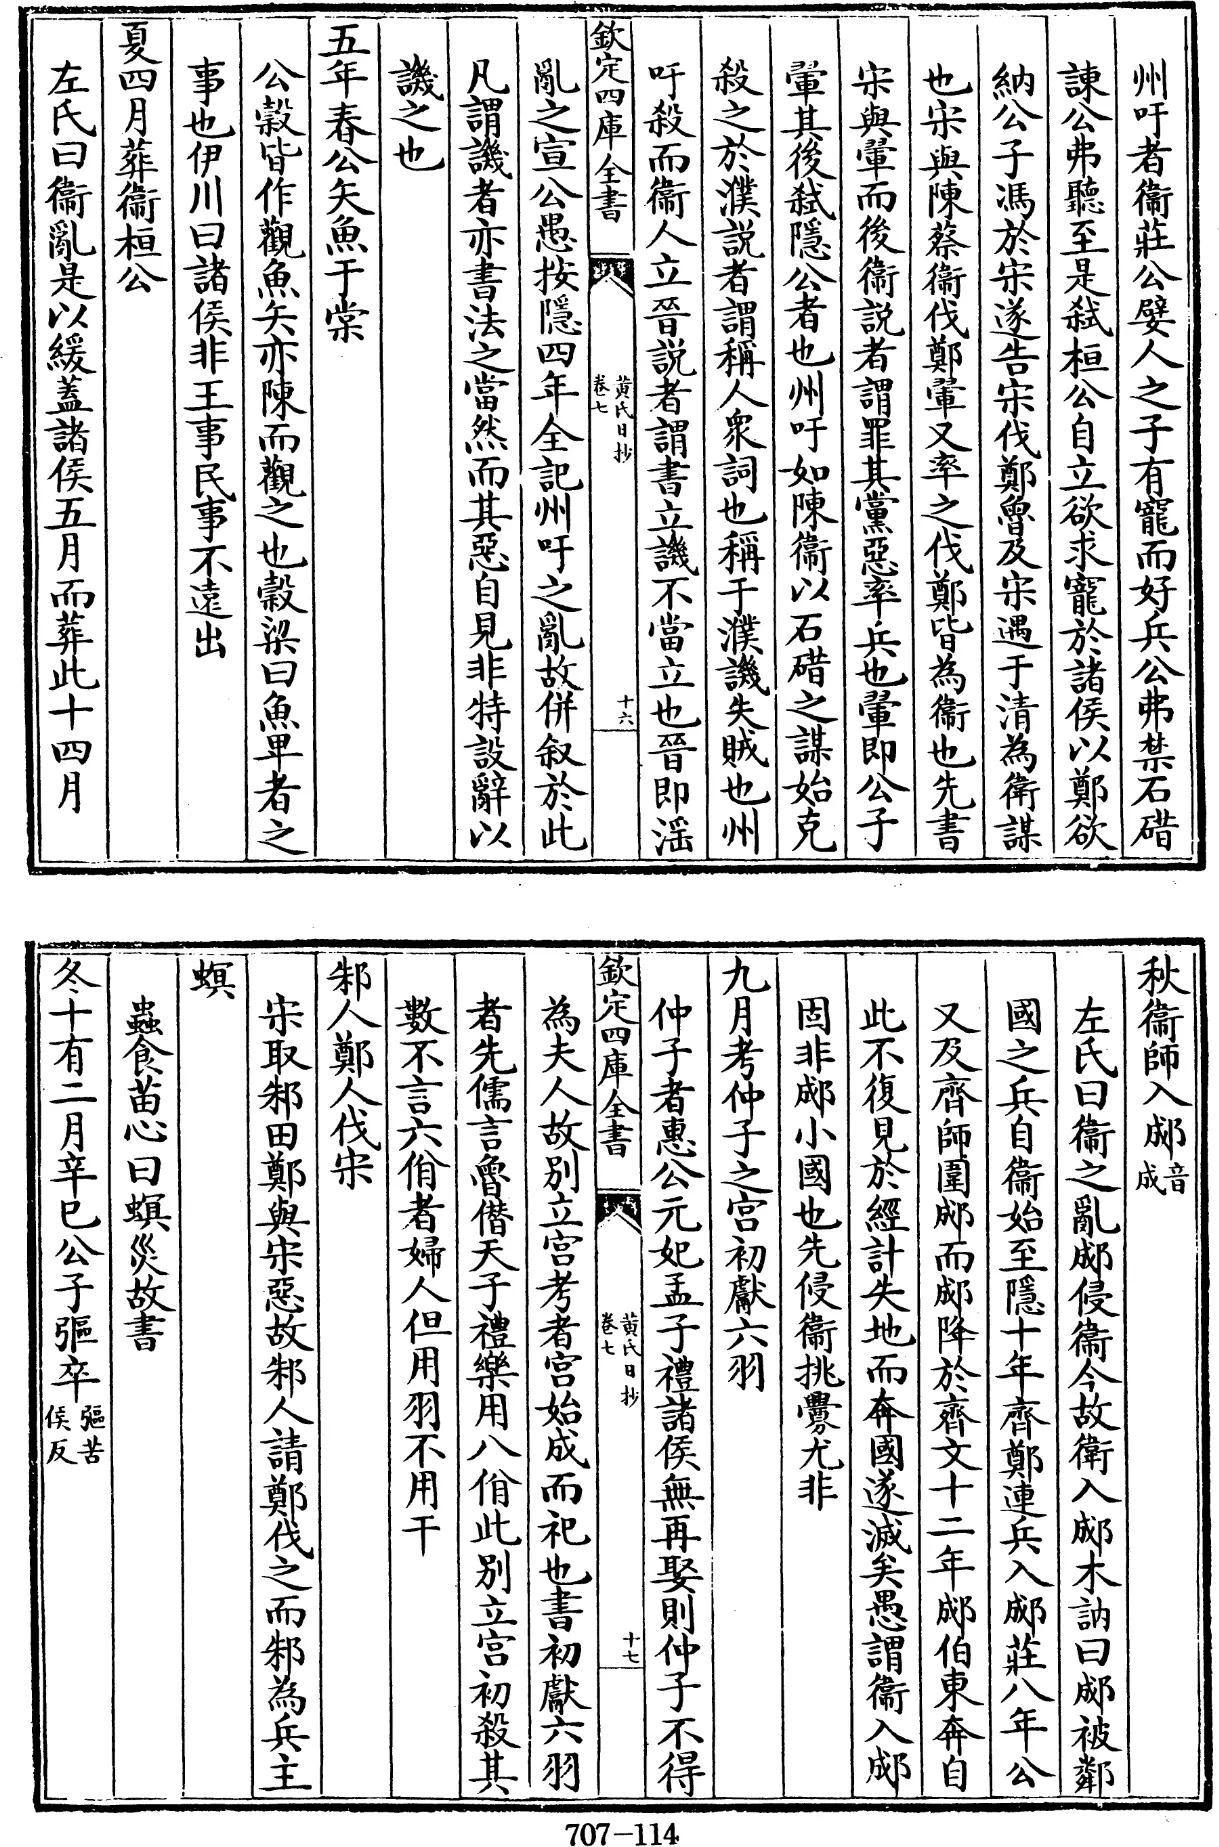 州吁者衞莊公嬖人之子有寵而好兵公弗禁石碏
諫公弗聽至是弑桓公自立欲求寵於諸侯以鄭欲
納公子馮於宋遂告宋伐鄭魯及宋遇于清為衛謀
也宋與陳蔡衞伐鄭翬又率之伐鄭皆為衞也先書
宋與翬而後衞説者謂罪其黨惡率兵也翬即公子
翬其後弑隱公者也州吁如陳衞以石碏之謀始克
殺之於濮説者謂稱人衆詞也稱于濮譏失賊也州
吁殺而衞人立晉説者謂書立譏不當立也晉即滛
欽定四庫全書
黄氏日抄
卷七
十六
亂之宣公愚按隱四年全記州吁之亂故併叙於此
凡謂譏者亦書法之當然而其惡自見非特設辭以
譏之也
五年春公矢魚于棠
公穀皆作觀魚矢亦陳而觀之也穀梁曰魚卑者之
事也伊川曰諸侯非王事民事不遠出
夏四月葬衞桓公
左氏曰衞亂是以緩蓋諸侯五月而葬此十四月
秋衞師入郕音成
左氏曰衞之亂郕侵衞今故衛入郕木訥曰郕被鄰
國之兵自衞始至隱十年齊鄭連兵入郕莊八年公
又及齊師圍郕而郕降於齊文十二年郕伯東奔自
此不復見於經計失地而奔國遂滅矣愚謂衞入郕
固非郕小國也先侵衞挑釁尤非
九月考仲子之宫初獻六羽
仲子者惠公元妃孟子禮諸侯無再娶則仲子不得
欽定四庫全書
黄氏日抄
卷七
十七
為夫人故别立宫考者宫始成而祀也書初獻六羽
者先儒言魯僭天子禮樂用八佾此别立宫初殺其
數不言六佾者婦人但用羽不用干
邾人鄭人伐宋
宋取邾田鄭與宋惡故邾人請鄭伐之而邾為兵主
螟
蟲食苗心曰螟災故書
冬十有二月辛巳公子彄卒彄苦侯反
707-114